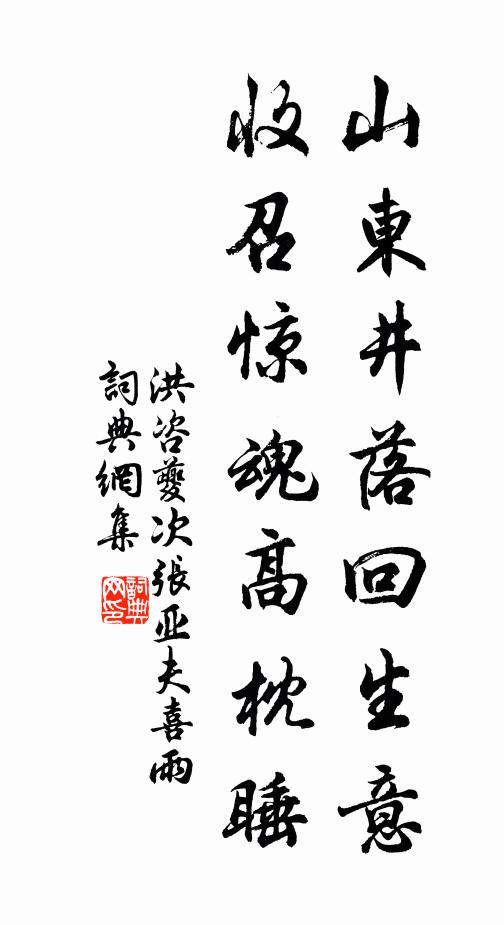 山東井落回生意
收召惊魂高枕睡
洪咨夔次張亚夫喜雨
詞典網集
詞典网印